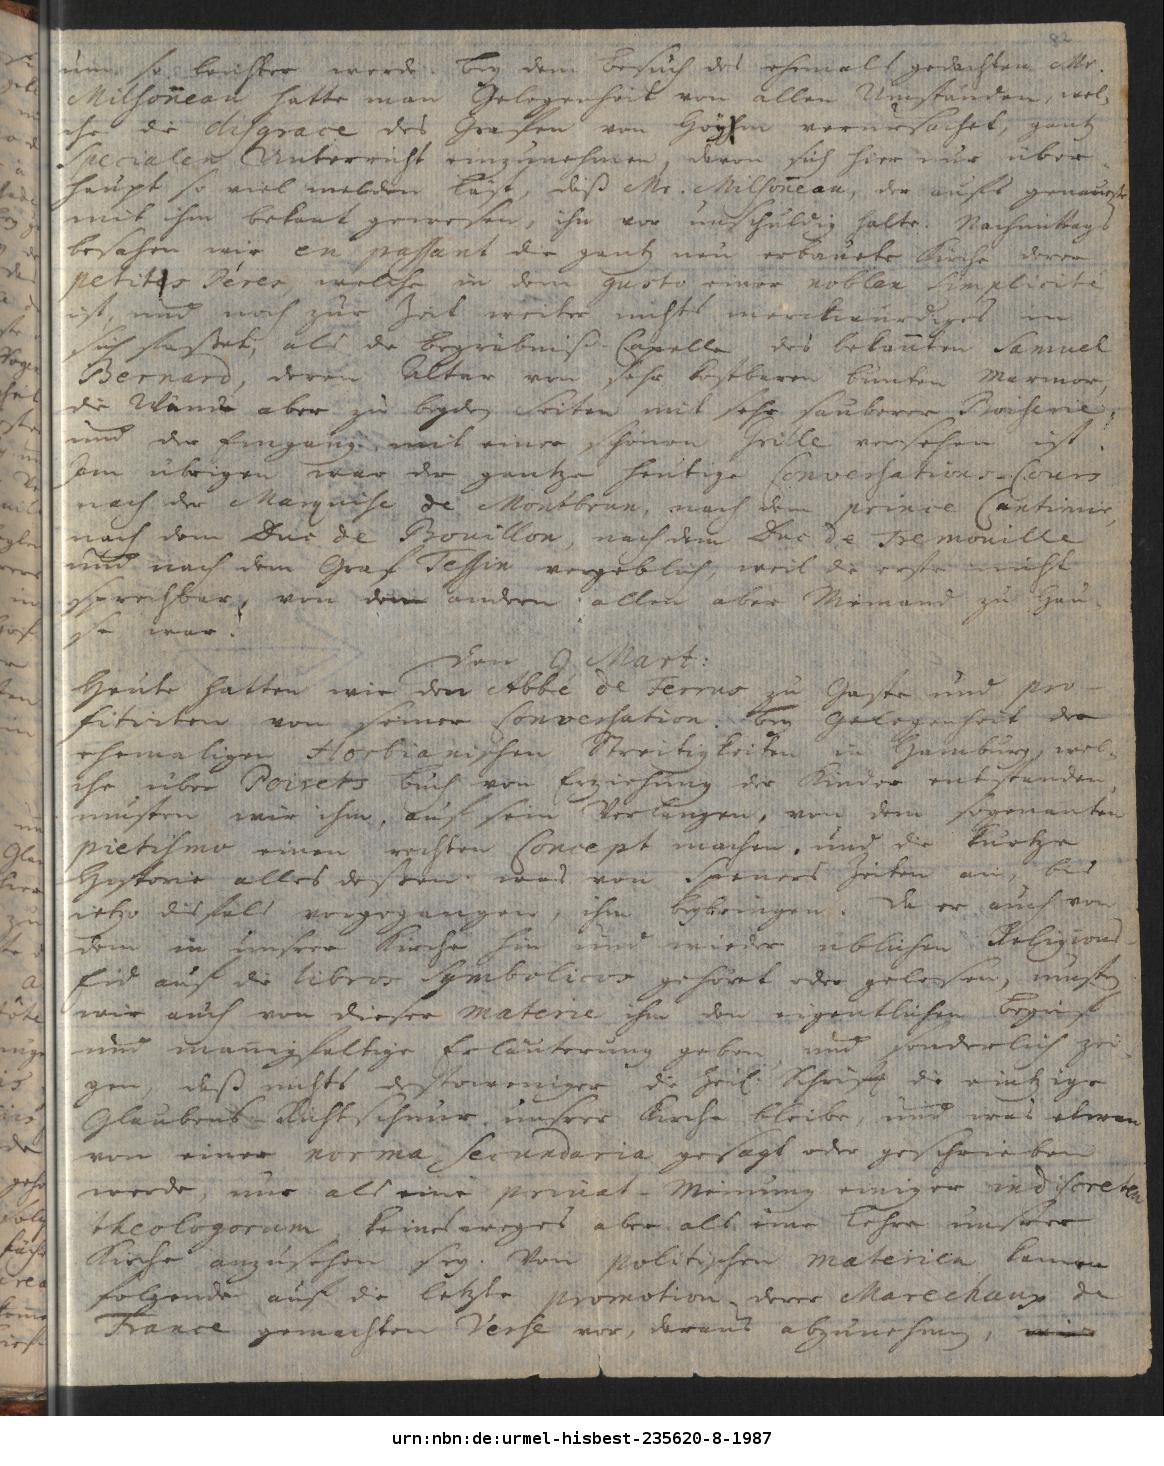 82
um so leichter werde. Bey dem Besuch des ehemals gedachten Mr.
Milsoñeau hatte man Gelegenheit von allen Umständen, wel-
che die disgrace des Grafen von Hoym verursachet, gantz
specialen Unterricht einzunehmen, davon sich hier nur über-
haupt so viel melden läst, daß Mr. Milsoñeau, der aufs genaueste
mit ihm bekant gewesen, ihn vor unschuldig halte. Nachmittags
besahen wir en passant die gantz neu erbauete Kirche derer
petits Péres, welche in dem gusto einer noblen Simplicité
ist, und noch zur Zeit weiter nichts merckwürdiges in
sich fasset, als die Begräbniß-Capelle des bekañten Samuel
Bernard, deren Altar von sehr kostbaren bunten Marmor,
die Wände aber zu beyden Seiten mit sehr sauberer Boiserie,
und der Eingang mit einer schönen Grille versehen ist.
Im übrigen war der gantze heutige Conversations-Cours
nach der Marquise de Montbrun, nach dem prince Cantimir,
nach dem Duc de Bouillon, nach dem Duc de Tremouille
und nach dem Graf Tessin vergeblich, weil die erste nicht
sprechbar, von den andern allen aber Niemand zu Hau-
se war.
Den 9 Mart:
Heute hatten wir den Abbé de Ferrus zu Gaste und pro-
fitirten von seiner Conversation. Bey Gelegenheit der
ehemaligen Horbianischen Streitigkeiten in Hamburg, wel-
che über Poirets Buch von Erziehung der Kinder entstanden
musten wir ihm, auf sein Verlangen, von dem sogenanten
pietismo einen rechten Concept machen, und die kurtze
Historie alles dessen was von Speners Zeiten an, bis
ietzo disfals vorgegangen, ihm beybringen. Da er auch von
dem in unsrer Kirche hin und wieder üblichen Religions-
Eid auf die libros Symbolicos gehöret oder gelesen, musten
wir auch von dieser materie ihm den eigentlichen Begrif
und mannigfaltige Erläuterung geben, und sonderlich zei-
gen, daß nichts destoweniger die Heil. Schrift die eintzige
Glaubens-Richtschnur unsrer Kirche bleibe, und was etwan
von einer norma secundaria gesagt oder geschrieben
werde, nur als eine privat-Meinung einiger indiscreten
theologorum, keinesweges aber als eine Lehre unsrer
Kirche anzusehen sey. Von politischen materien kamen
folgende auf die letzte promotion derer Marechaux de
France gemachten Verse vor, daraus abzunehmen,